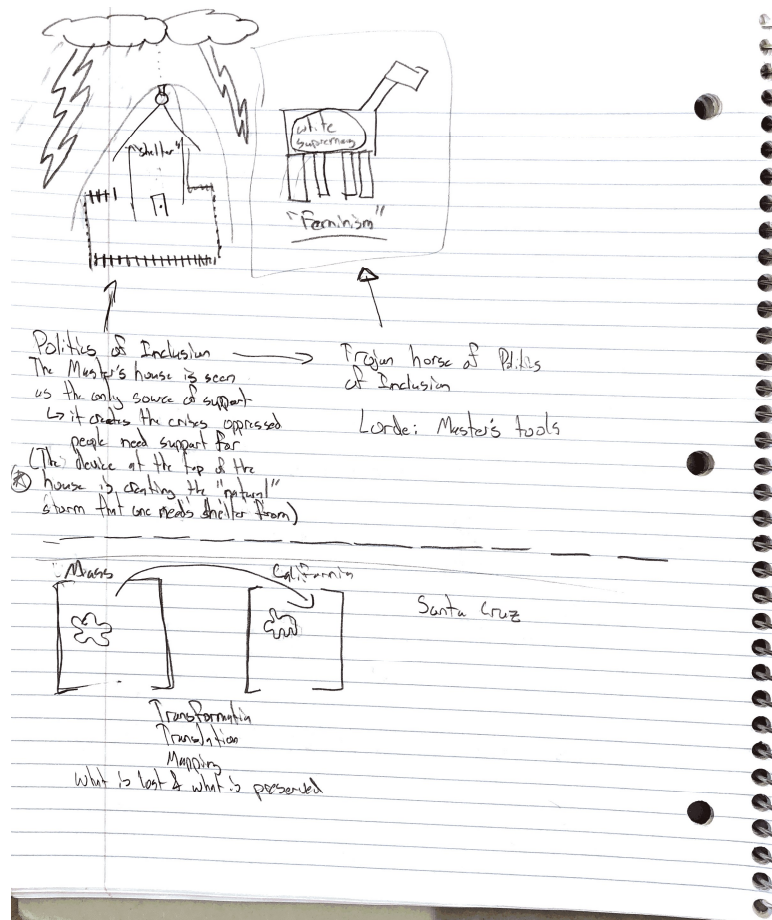 "shelter"
white
supremacy
"Feminism"
Politics of Inclusion
The Master's house is seen
as the only source of support
↳ it creates the crises oppressed
people need support for
(The device at the top of the
house is creating the "natural"
storm that one needs shelter from)
Trojan horse of Politics
of Inclusion
Lorde: Master's tools
Mass
California
Santa Cruz
Transformation
Translation
Mapping
what is lost & what is preserved